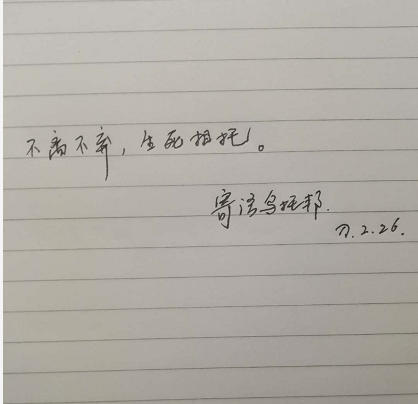 不离不弃，生死相托。
寄语乌托邦.
21.2.26.